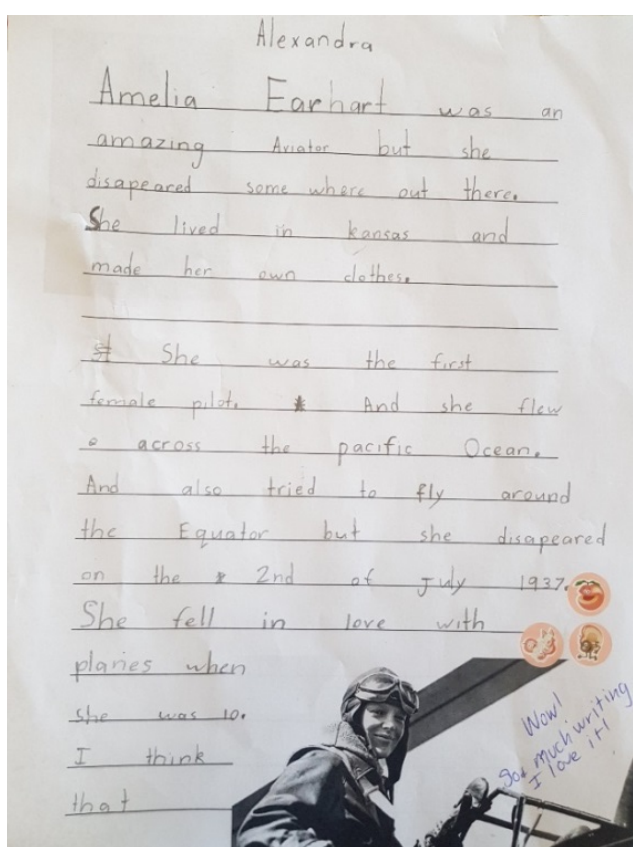 Alexandra
Amelia Earhart was an
amazing Aviator but she
disapeared some where out there.
She lived in kansas and
made her own clothes.
She was the first
female pilot. And she flew
across the pacific Ocean.
And also tried to fly around
the Equator but she disapeared
on the 2nd of July 1937.
She fell in love with
planes when
she was 10.
I think
that
Wow!
So much writing
I love it!